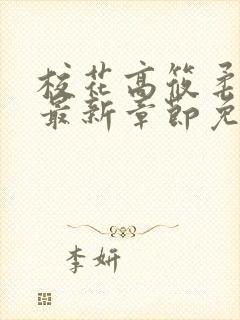 校花高筱柔
最新章节免
李妍